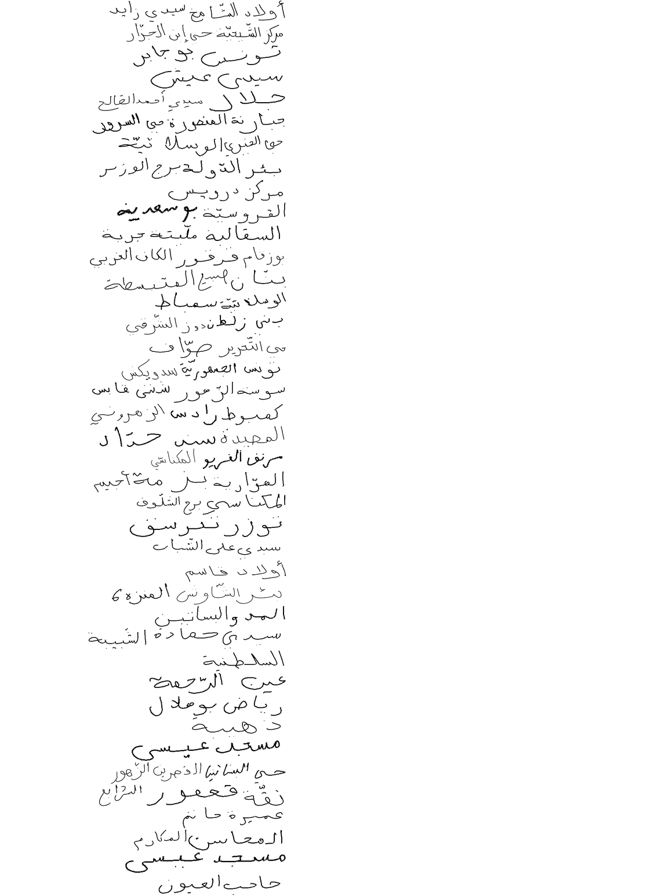 أولاد الشامخ سيدي زايد
مركز الشيحيّة حي إبن الجزّار
تونس بوجابر
سيدي عيش
جلال سيدي أحمد الصالح
جبارنة المنصورة حي السرور
حي العنبري الوسلاتيّة
بئر الدّولة برج الوزير
مركز درويس
القروسيّة بوسعدية
السقالبة مليتة جربة
بوزمام فرفور الكاف الغربي
بنّان المتبسطة
الوسلاتيّة سمباط
بني زلطن دوز الشّرقي
حي التّحرير صوّاف
تونس الجمهوريّة سدويكس
سوسة الزّهور شنني قابس
كمبوط رادس الزهروني
المصيدة سند حدّاد
سرنف الفريو المكناسي
الهوّارية أحيم
المكناسي برج الشلّوف
توزر تبرسق
سيدي علي الشباب
أولاد قاسم
بئر الشاوش المنزه 6
المد والبساتين
سيدي حمادة الشبيبة
السلطنية
عين الرّحمة
رياض بوهلال
ذهبية
مسجد عيسى
حي البساتين الزّهور
نقّة قعفور الشرايع
عميرة حاتم
المحاسن المكارم
مسجد عيسى
حاجب العيون